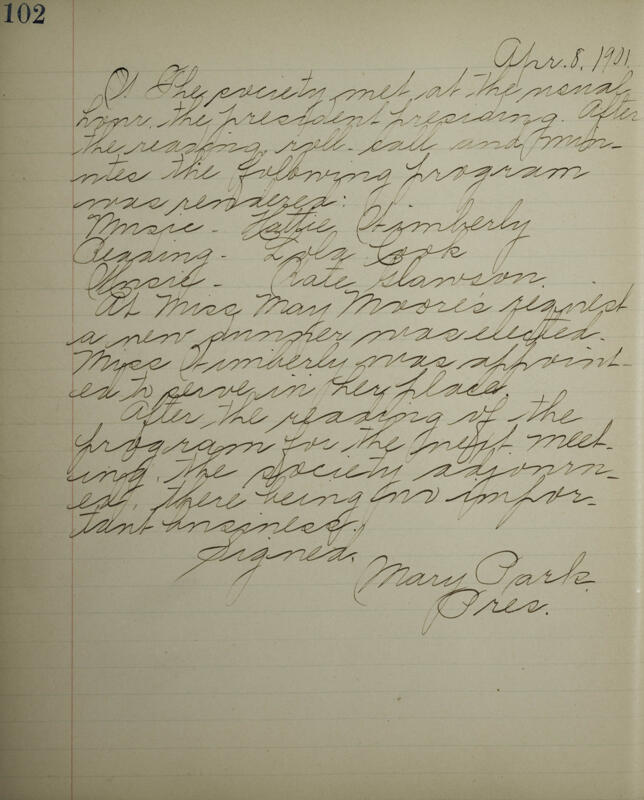 102
Apr. 8, 1901.
The society met at the usual
hour, the president presiding. After
the reading, roll-call and min-
utes the following program
was rendered:
Music - Hattie Wimberly
Reading - Lola Cook
Music - Kate Slawson.
At Miss May Moore's request
a new punster was elected.
Miss Wimberly was appoint-
ed to serve in her place.
After the reading of the
program for the next meet-
ing, the society adjourn-
ed, there being no impor-
tant business.
Signed,
Mary Park.
Pres.